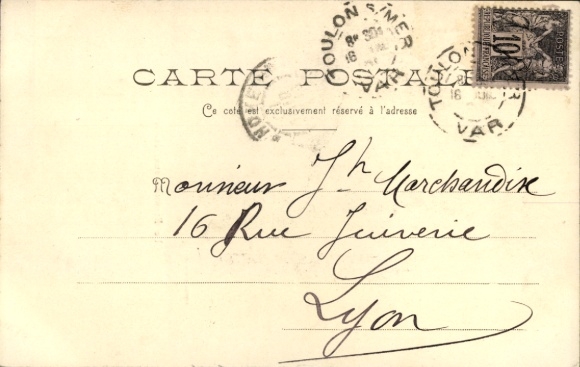 TOULON S/MER
VAR
TOULON
VAR
10
CARTE POSTALE
Ce coté est exclusivement réservé à l'adresse
Monsieur Jh Marchandise
16 Rue Juiverie
Lyon